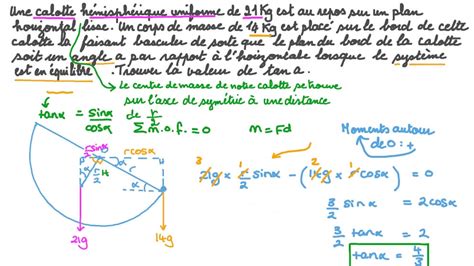 Une calotte hémisphérique uniforme de 21 Kg est au repos sur un plan
horizontal lisse. Un corps de masse de 14 Kg est placé sur le bord de cette
calotte la faisant basculer de sorte que le plan du bord de la calotte
soit un angle α par rapport à l'horizontale lorsque le système
est en équilibre. Trouver la valeur de tan α.
Le centre de masse de notre calotte se trouve
sur l'axe de symétrie à une distance
de r/2
tanα = sinα/cosα
Σm.o.f. = 0
M = Fd
Moments autour
de O : +
r/2 sinα
rcosα
r/2
H
α
r
α
α
21g
14g
3 21g × r/2 sinα − (2 14g × r cosα) = 0
3/2 sinα = 2cosα
3/2 tanα = 2
tanα = 4/3